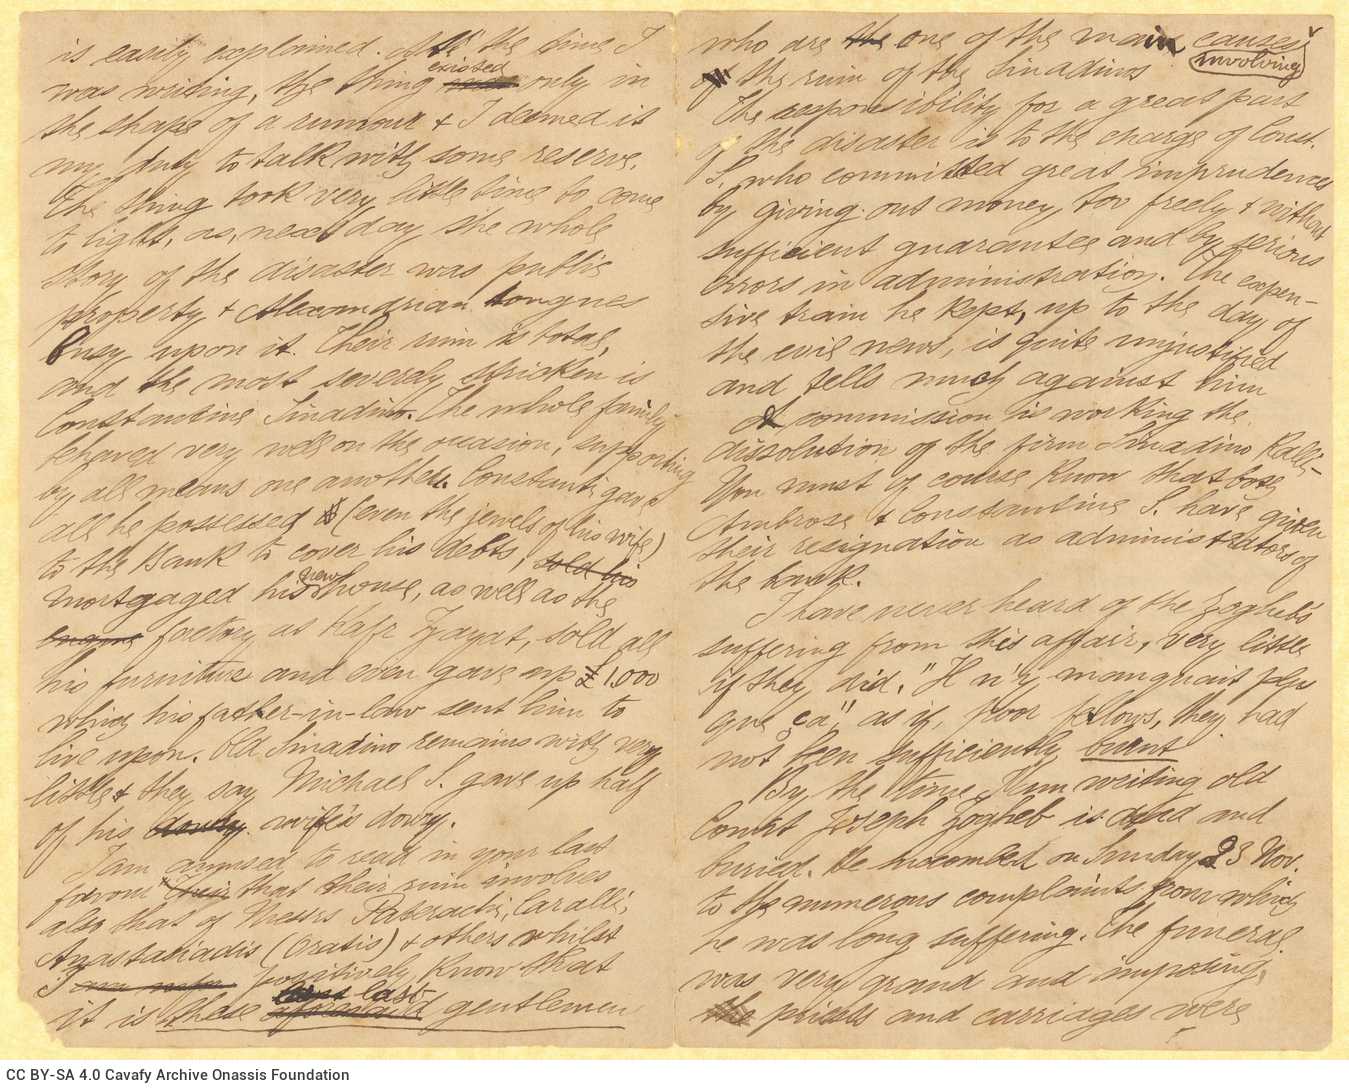 is easily explained. At the time I
was writing, the thing existed only in
the shape of a rumour & I deemed it
my duty to talk with some reserve.
The thing took very little time to come
to light, as, next day the whole
story of the disaster was public
property & Alexandrian tongues
busy upon it. Their ruin is total,
and the most severely stricken is
Constantine Sinadino. The whole family
behaved very well on the occasion, supporting
by all means one another. Constanti gave
all he possessed (even the jewels of his wife)
to the Bank to cover his debts, sold his
mortgaged his new house, as well as the
factory at Kafr Zayat, sold all
his furniture and even gave up £1,000
which his father-in-law sent him to
live upon. Old Sinadino remains with very
little & they say Michael S. gave up half
of his dowry wife's dowry.
I am amused to read in your last
favour their that their ruin involves
also that of Messrs Pateraki, Caralli,
Anastasiadis (Oratis) & others whilst
I am positively know that
it is these last gentlemen
who are the one of the main causes
involving
of the ruin of the Sinadinos
The responsibility for a great part
of the disaster is to the charge of Const.
S. who committed great imprudences
by giving out money too freely & without
sufficient guarantee and by serious
errors in administration. The expen-
sive train he kept, up to the day of
the evil news, is quite unjustified
and tells much against him
A commission is working the
dissolution of the firm Sinadino Ralli-
You must of course know that both
Ambrose & Constantine S. have given
their resignation as administrators of
the bank.
I have never heard of the Zogheb's
suffering from this affair, very little
if they did. "Il n'y manquait plus
que ça", as if, poor fellows, they had
not been sufficiently burnt
By the time I am writing old
Count Joseph Zogheb is dead and
buried. He succombed on Sunday 23 Nov.
to the numerous complaints from which
he was long suffering. The funeral
was very grand and imposing,
the priests and carriages were
CC BY-SA 4.0 Cavafy Archive Onassis Foundation